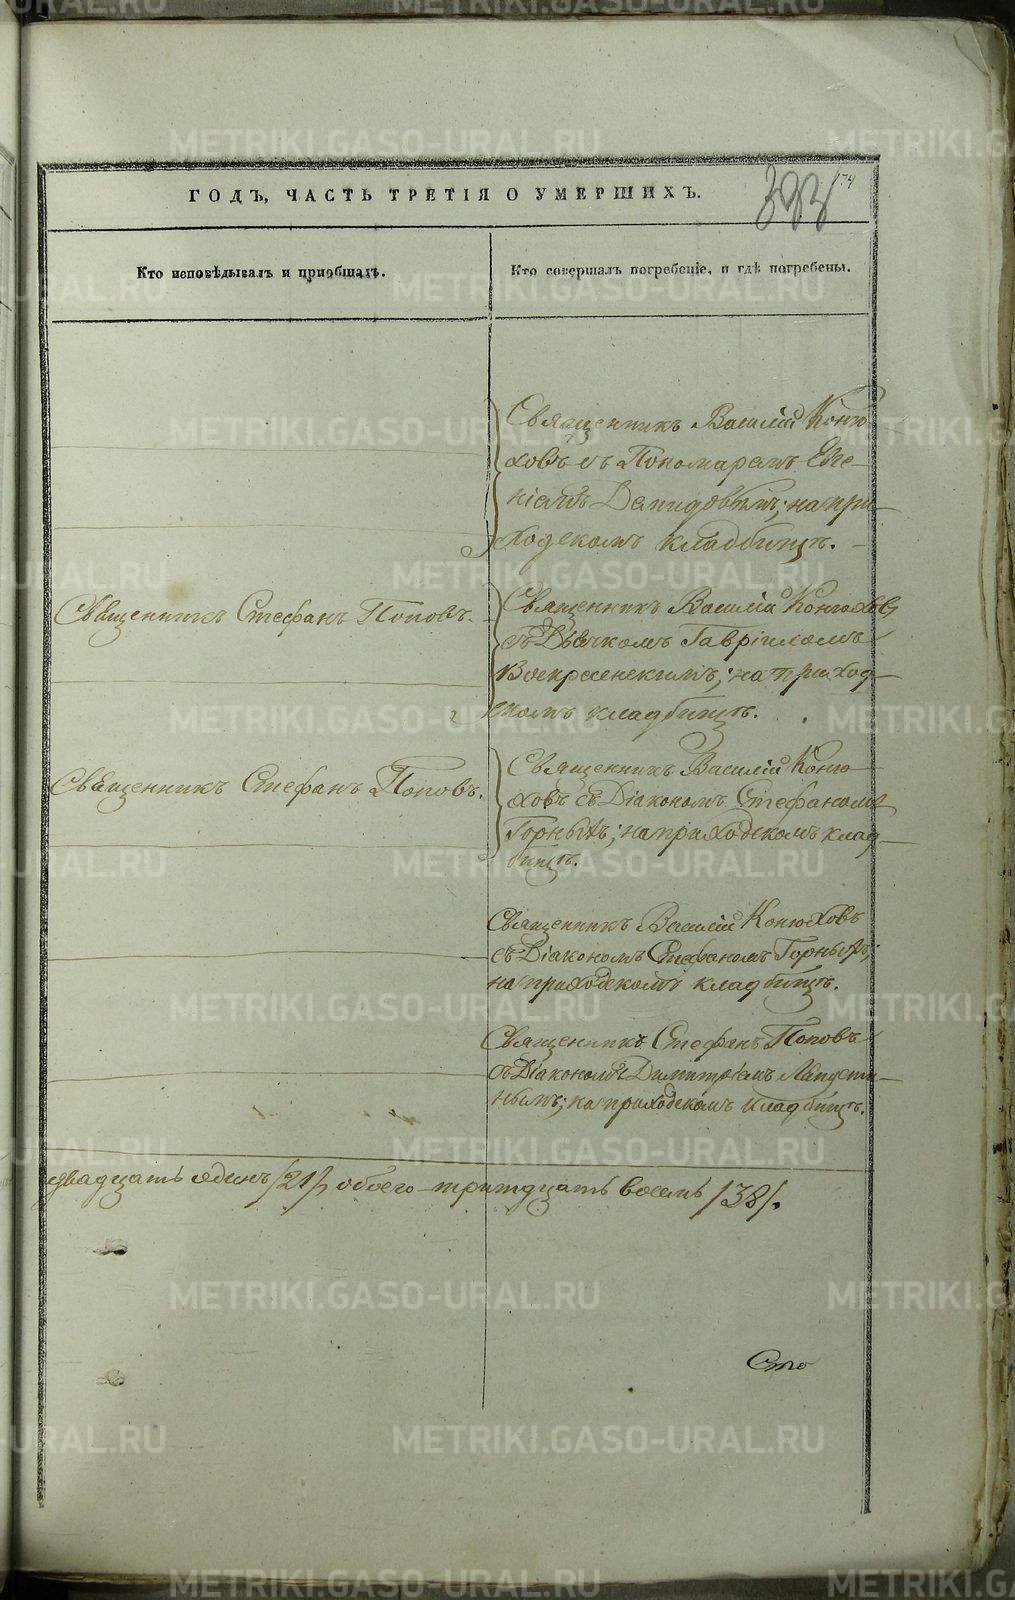 ГОДЪ, ЧАСТЬ ТРЕТІЯ О УМЕРШИХЪ.
174
Кто исповѣдывалъ и пріобщалъ.
Кто совершалъ погребеніе, и гдѣ погребены.
Священникъ Василій Коню
ховъ съ Пономаремъ Евге-
ніемъ Демидовымъ; на при-
ходскомъ кладбищѣ.
Священникъ Стефанъ Поповъ.
Священникъ Василій Конюховъ,
съ Дьячкомъ Гавріиломъ
Воскресенскимъ; на приход-
скомъ кладбищѣ.
Священникъ Стефанъ Поповъ.
Священникъ Василій Коню
ховъ съ Діакономъ Стефаномъ
Горныхъ; на приходскомъ клад-
бищѣ.
Священникъ Василій Конюховъ
съ Діакономъ Стефаномъ Горныхъ;
на приходскомъ кладбищѣ.
Священникъ Стефанъ Поповъ
съ Діакономъ Димитріемъ
на приходскомъ кладбищѣ.
двадцать одинъ /21/, обоего тритцать восемь /38/.
METRIKI.GASO-URAL.RU